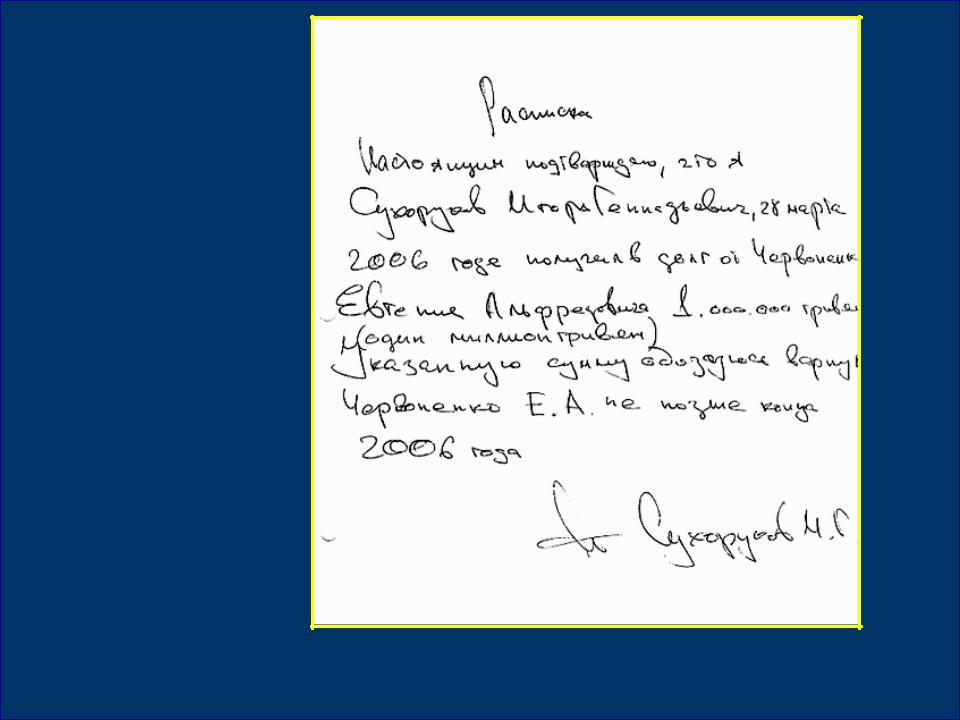 Расписка
Настоящим подтверждаю, что я
Сухоруков Игорь Геннадьевич, 28 марта
2006 года получил в долг от Червоненк
Евгения Альфредовича 1.000.000 гривен
(один миллион гривен)
Указанную сумму обязуюсь верну
Червоненко Е.А. не позже конца
2006 года
Сухоруков И.Г.